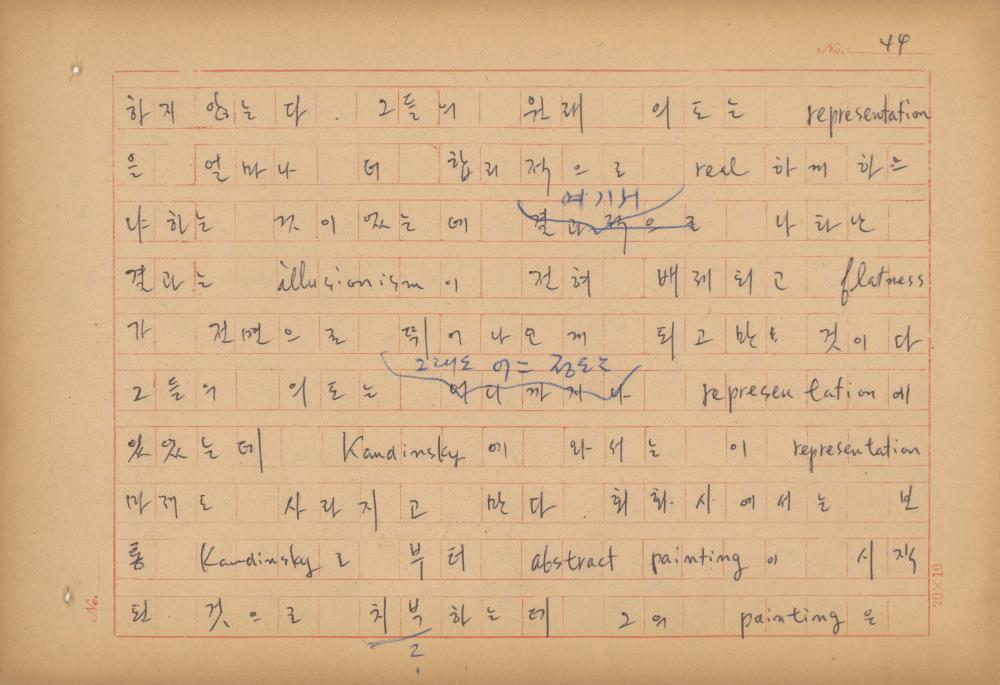 No. 44
하지 않는다. 그들의 원래 의도는 representation
은 얼마나 더 합리적으로 real 하게 하느
냐 하는 것이 있는데 여기서 결과적으로 나타난
결과는 illusionism이 전혀 배제되고 flatness
가 전면으로 튀어나오게 되고 만 것이다
그래도 어느 정도는
그들의 의도는 어디까지나 representation에
있었는데 Kandinsky에 와서는 이 representation
마저도 사라지고 만다. 회화사에서는 보
통 Kandinsky로 부터 abstract painting이 시작
된 것으로 치부하는데 그의 painting은
?
No.
20×10